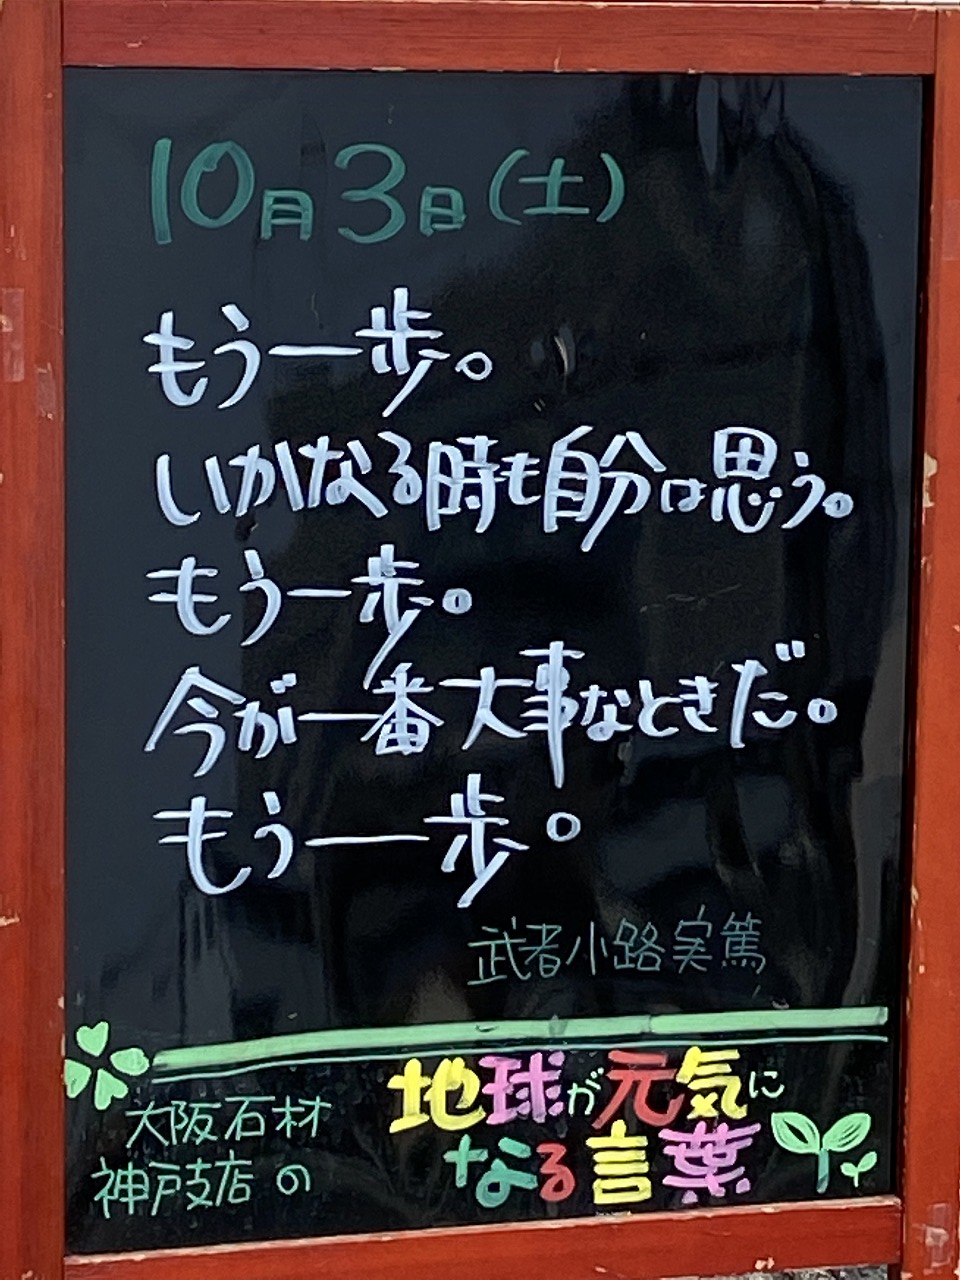 10月3日(土)
もう一歩。
いかなる時も自分は思う。
もう一歩。
今が一番大事なときだ。
もう一歩。
武者小路実篤
大阪石材
神戸支店の
地球が元気に
なる言葉